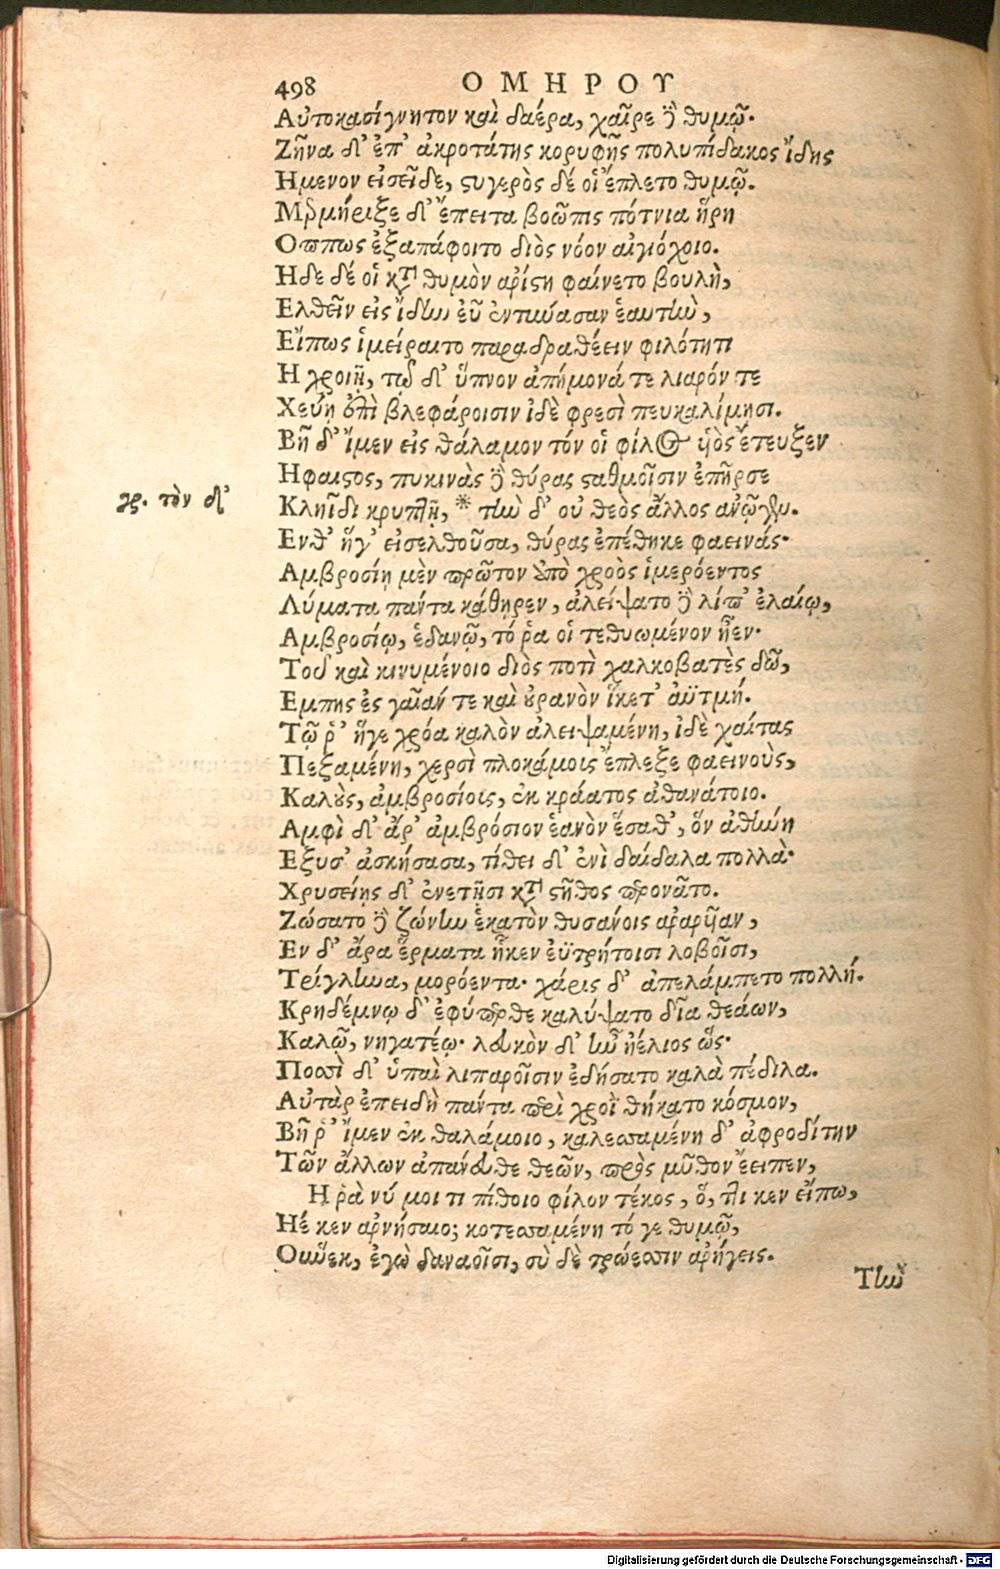 498 ΟΜΗΡΟΥ
Αὐτοκασίγνητον καὶ δαέρα, χαῖρε δὲ θυμῷ·
Ζῆνα δ' ἐπ' ἀκροτάτης κορυφῆς πολυπίδακος ἴδης
Ημενον εἰσεῖδε, στυγερὸς δέ οἱ ἔπλετο θυμῷ.
Μερμήριξε δ' ἔπειτα βοῶπις πότνια ἥρη
Οππως ἐξαπάφοιτο διὸς νόον αἰγιόχοιο.
Ηδε δέ οἱ κατὰ θυμὸν ἀρίστη φαίνετο βουλὴ,
Ελθεῖν εἰς ἴδην εὖ ἐντύνασαν ἑαυτὴν,
Εἴπως ἱμείραιτο παραδραθέειν φιλότητι
Η χροιῇ, τῷ δ' ὕπνον ἀπήμονά τε λιαρόν τε
Χεύῃ ἐπὶ βλεφάροισιν ἰδὲ φρεσὶ πευκαλίμησι.
Βῆ δ' ἴμεν εἰς θάλαμον τόν οἱ φίλος υἱὸς ἔτευξεν
Ηφαιστος, πυκινὰς δὲ θύρας σταθμοῖσιν ἐπῆρσε
γρ. τὸν δ'
Κληῖδι κρυπτῇ, * τὴν δ' οὐ θεὸς ἄλλος ἀνῷγεν.
Ενθ' ἥγ' εἰσελθοῦσα, θύρας ἐπέθηκε φαεινάς·
Αμβροσίῃ μὲν πρῶτον ἀπὸ χροὸς ἱμερόεντος
Λύματα παντα κάθηρεν, ἀλείψατο δὲ λίπ' ἐλαίῳ,
Αμβροσίῳ, ἑδανῷ, τό ῥα οἱ τεθυωμένον ἦεν·
Τοῦ καὶ κινυμένοιο διὸς ποτὶ χαλκοβατὲς δῶ,
Εμπης ἐς γαῖάν τε καὶ οὐρανὸν ἵκετ' ἀϋτμή.
Τῷ ῥ' ἥγε χρόα καλὸν ἀλειψαμένη, ἰδὲ χαίτας
Πεξαμένη, χερσὶ πλοκάμοις ἔπλεξε φαεινοὺς,
Καλοὺς, ἀμβροσίοις, ἐκ κράατος ἀθανάτοιο.
Αμφὶ δ' ἄρ' ἀμβρόσιον ἑανὸν ἕσαθ', ὅν ἀθήνη
Εξυσ' ἀσκήσασα, τίθει δ' ἐνὶ δαίδαλα πολλὰ·
Χρυσείης δ' ἐνετῇσι κατὰ στῆθος περονᾶτο.
Ζώσατο δὲ ζώνην ἑκατὸν θυσάνοις ἀραρῆαν,
Εν δ' ἄρα ἕρματα ἧκεν ἐϋτρήτοισι λοβοῖσι,
Τρίγληνα, μορόεντα· χάρις δ' ἀπελάμπετο πολλή.
Κρηδέμνῳ δ' ἐφύπερθε καλύψατο δῖα θεάων,
Καλῷ, νηγατέῳ· λευκὸν δ' ἦν ἠέλιος ὥς·
Ποσσὶ δ' ὑπαὶ λιπαροῖσιν ἐδήσατο καλὰ πέδιλα.
Αὐτὰρ ἐπειδὴ παντα περὶ χροῒ θήκατο κόσμον,
Βῆ ῥ' ἴμεν ἐκ θαλάμοιο, καλεσσαμένη δ' ἀφροδίτην
Τῶν ἄλλων ἀπάνευθε θεῶν, πρὸς μῦθον ἔειπεν,
Η ῥὰ νύ μοι τι πίθοιο φίλον τέκος, ὅ, ττι κεν εἴπω,
Ηέ κεν ἀρνήσαιο; κοτεσσαμένη τό γε θυμῷ,
Ουνεκ, ἐγὼ δαναοῖσι, σὺ δὲ τρώεσσιν ἀρήγεις.
Τὴν
Digitalisierung gefördert durch die Deutsche Forschungsgemeinschaft - DFG